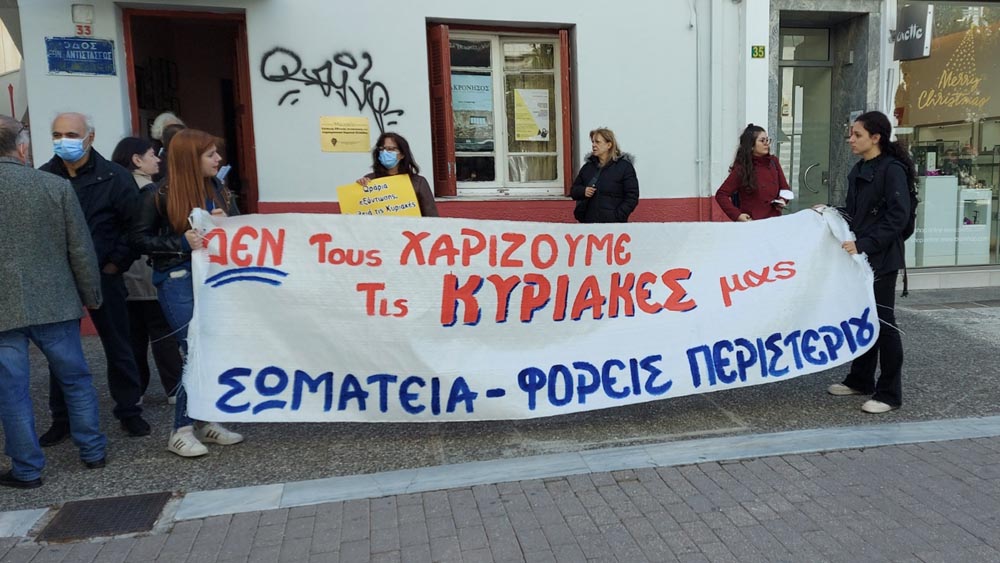 33
ΟΔΟΣ
ΕΘΝ. ΑΝΤΙΣΤΑΣΕΩΣ
ΑΚΡΟΝΗΣΟΣ
35
Merry
Christmas
Ωράρια
εξόντωσης
τις Κυριακές
ΔΕΝ Τους ΧΑΡΙΖΟΥΜΕ
Τις ΚΥΡΙΑΚΕΣ μας
ΣΩΜΑΤΕΙΑ - ΦΟΡΕΙΣ ΠΕΡΙΣΤΕΡΙΟΥ